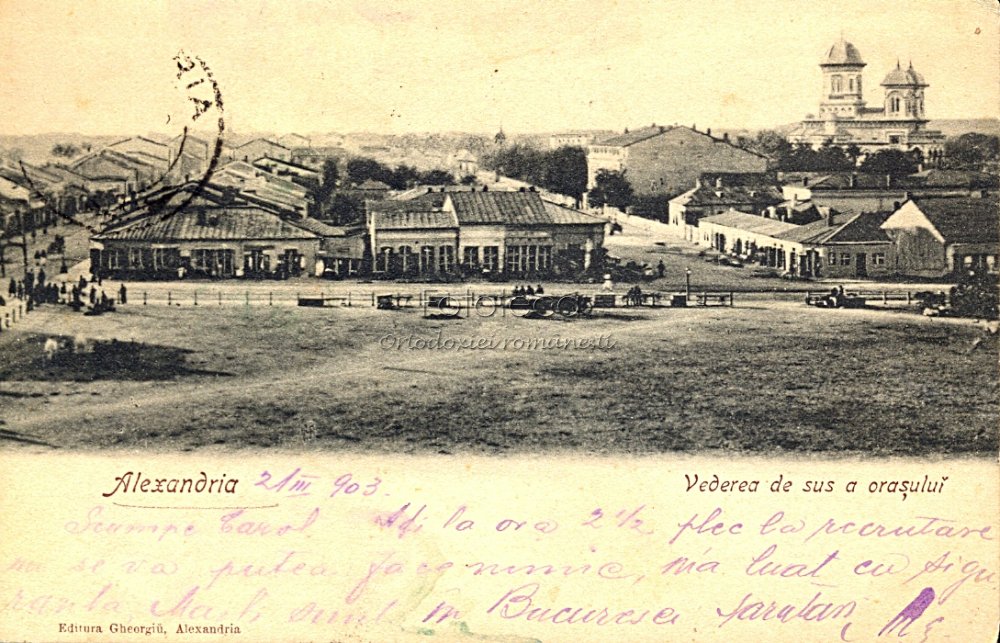 RIA
FOTOTECA
Ortodoxiei românești
Alexandria 21/III 903.
Vederea de sus a orașuluĭ
Scumpe Carol la ora 2 1/2 plec la recrutare
nu se va putea face nimic, m'a luat cu sigu
ranta sunt în Bucuresci
Editura Gheorgiŭ, Alexandria